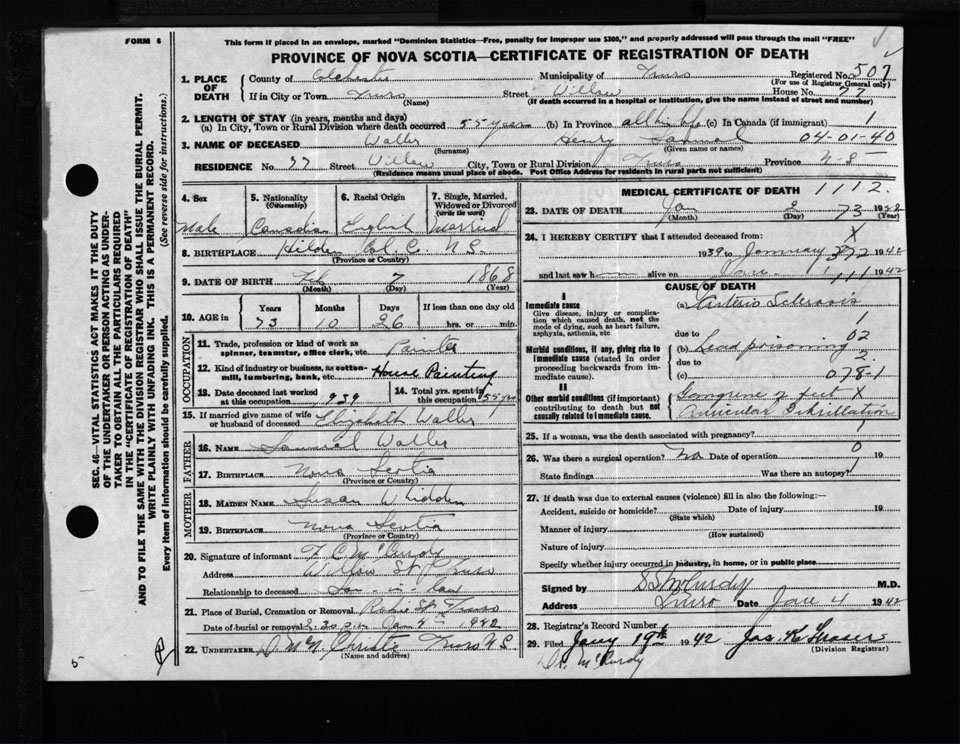 FORM 6
This form if placed in an envelope, marked "Dominion Statistics—Free, penalty for improper use $300," and properly addressed will pass through the mail "FREE"
PROVINCE OF NOVA SCOTIA—CERTIFICATE OF REGISTRATION OF DEATH
SEC. 46—VITAL STATISTICS ACT MAKES IT THE DUTY
OF THE UNDERTAKER OR PERSON ACTING AS UNDER-
TAKER TO OBTAIN ALL THE PARTICULARS REQUIRED
IN THE "CERTIFICATE OF REGISTRATION OF DEATH"
AND TO FILE THE SAME WITH THE DIVISION REGISTRAR WHO SHALL ISSUE THE BURIAL PERMIT.
WRITE PLAINLY WITH UNFADING INK. THIS IS A PERMANENT RECORD.
Every item of information should be carefully supplied. (See reverse side for instructions).
1. PLACE OF DEATH
County of Colchester Municipality of Truro Registered No. 507
(For use of Registrar General only)
If in City or Town Truro Street Willow House No. 77
(Name) (If death occurred in a hospital or institution, give the name instead of street and number)
2. LENGTH OF STAY (in years, months and days)
(a) In City, Town or Rural Division where death occurred 55 years (b) In Province all his life (c) In Canada (if immigrant) 1
3. NAME OF DECEASED Waller Henry 04-01-40
(Surname) (Given name or names)
RESIDENCE No. 77 Street Willow City, Town or Rural Division Truro Province N-S
(Residence means usual place of abode. Post Office Address for residents in rural parts not sufficient)
4. Sex 5. Nationality (Citizenship) 6. Racial Origin 7. Single, Married, Widowed or Divorced (write the word)
Male Canadian English Married
8. BIRTHPLACE Hilden Col. Co. N.S.
(Province or Country)
9. DATE OF BIRTH Feb 7 1868
(Month) (Day) (Year)
10. AGE in Years Months Days If less than one day old
73 10 26 hrs. or min.
OCCUPATION
11. Trade, profession or kind of work as spinner, teamster, office clerk, etc. Painter
12. Kind of industry or business, as cotton-mill, lumbering, bank, etc. House Painting
13. Date deceased last worked at this occupation 1939 14. Total yrs. spent in this occupation 55 yrs
15. If married give name of wife or husband of deceased Elizabeth Waller
FATHER
16. NAME Samuel Waller
17. BIRTHPLACE Nova Scotia
(Province or Country)
MOTHER
18. MAIDEN NAME Susan Whidden
19. BIRTHPLACE Nova Scotia
(Province or Country)
20. Signature of informant F C McCurdy
Address Willow St. Truro
Relationship to deceased Son-in-law
21. Place of Burial, Cremation or Removal Robie St. Truro
Date of burial or removal 2.30 p.m. Jan 4th 1942
22. UNDERTAKER Christie Truro N.S.
(Name and address)
MEDICAL CERTIFICATE OF DEATH 1112.
23. DATE OF DEATH Jan 2 73 19
(Month) (Day) (Year)
24. I HEREBY CERTIFY that I attended deceased from: X
1939 to January 1942
and last saw h alive on Jan. 1942
CAUSE OF DEATH
I
Immediate cause (a) Arterio Sclerosis
Give disease, injury or complication which caused death, not the mode of dying, such as heart failure, asphyxia, asthenia, etc.
1
due to 02
Morbid conditions, if any, giving rise to immediate cause (stated in order proceeding backwards from immediate cause).
(b) Lead poisoning
due to 2
(c) 078-1
II
Other morbid conditions (if important) contributing to death but not causally related to immediate cause.
Gangrene of feet X
Auricular Fibrillation
25. If a woman, was the death associated with pregnancy?
26. Was there a surgical operation? No Date of operation 0
State findings Was there an autopsy? 1
27. If death was due to external causes (violence) fill in also the following:—
Accident, suicide or homicide? Date of injury 19
(State which)
Manner of injury
(How sustained)
Nature of injury
Specify whether injury occurred in industry, in home, or in public place
Signed by S S McCurdy M.D.
Address Truro Date Jan 4 1942
28. Registrar's Record Number
29. Filed Jany 19th 1942 Jas. K. Fraser
(Division Registrar)
Dr. McCurdy
5